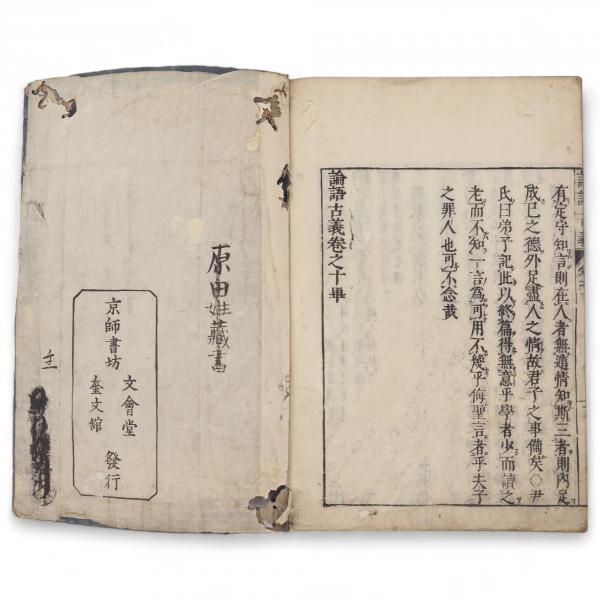 有定守知言則在人者無遁情知斯三者則內足
成己之德外足盡人之情故君子之事備矣○尹
氏曰弟子記此以終篇得無意乎學者少而讀之
老而不知一言爲可用不幾乎侮聖言者乎夫子
之罪人也可不念哉
論語古義卷之十畢
原田姓藏書
京師書坊
文會堂
奎文舘
發行
主